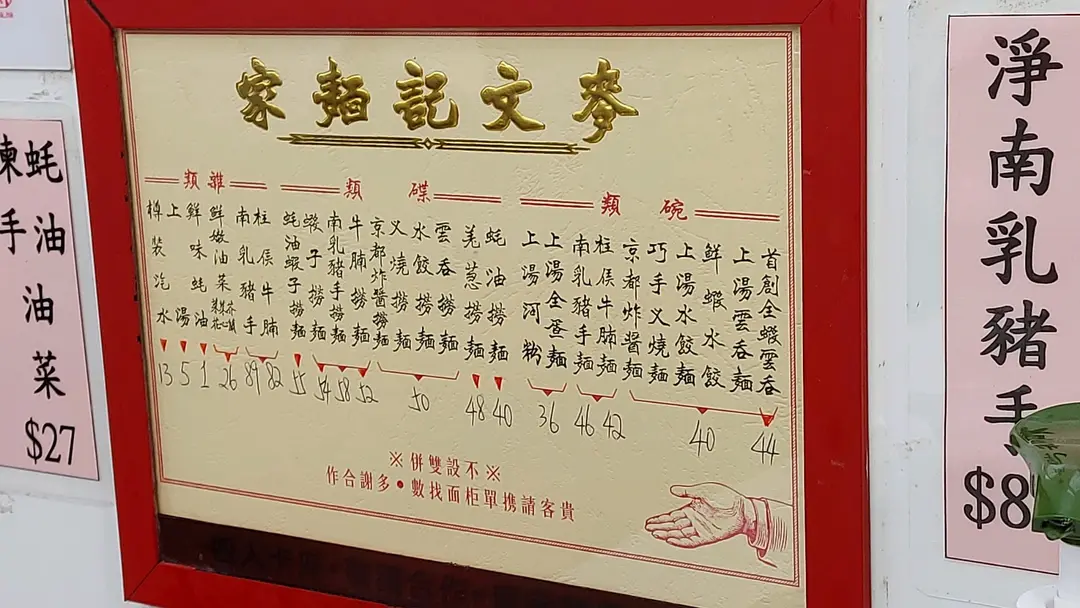 麥文記麵家
碗類
首創全蝦雲吞
44
上湯雲吞麵
鮮蝦水餃
上湯水餃麵
巧手叉燒麵
京都炸醬麵
40
柱侯牛腩麵
42
南乳豬手麵
46
上湯全蛋麵
上湯河粉
36
碟類
蚝油撈麵
40
羌葱撈麵
48
雲吞撈麵
水餃撈麵
叉燒撈麵
京都炸醬撈麵
50
牛腩撈麵
52
南乳豬手撈麵
58
蝦子撈麵
54
蚝油蝦子撈麵
55
雜類
柱侯牛腩
82
南乳豬手
89
鮮嫩油菜
26
鮮味蚝油
1
上湯
5
樽裝汽水
13
※不設雙併※
貴客請携單柜面找數•多謝合作
淨南乳豬手
$8
蚝油油菜
$27